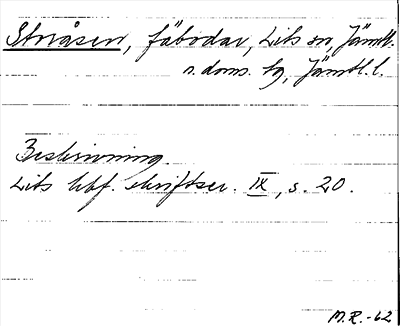 Storåsen, fäbodar, Lits sn, Jämtl.
n. doms. tg, Jämtl. l.
Beskrivning
Lits hbf. skriftser. IX, s. 20.
M.R.-62